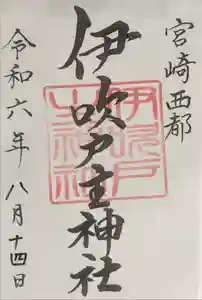 宮崎西都
伊吹戸主神社
令和六年 八月十四日
伊吹戸主神社